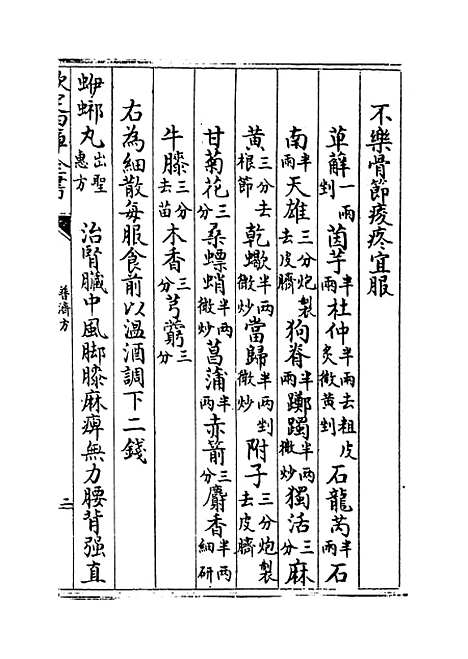 不樂骨節痠疼宜服
萆薢一兩剉 茵芋半兩 杜仲半兩去粗皮炙微黄剉 石龍芮半兩 石
南半兩 天雄三分炮製去皮臍 狗脊半兩 躑躅半兩微炒 獨活三分 麻
黄三分去根節 乾蠍半兩微炒 當歸半兩剉微炒 附子三分炮製去皮臍
甘菊花三分 桑螵蛸半兩微炒 菖蒲半兩 赤箭三分 麝香半兩細研
牛膝三分去苗 木香三分 芎藭三分
右為細散每服食前以溫酒調下二錢
蛜丸出聖惠方 治腎臟中風脚膝麻痺無力腰背强直
欽定四庫全書 普濟方 二